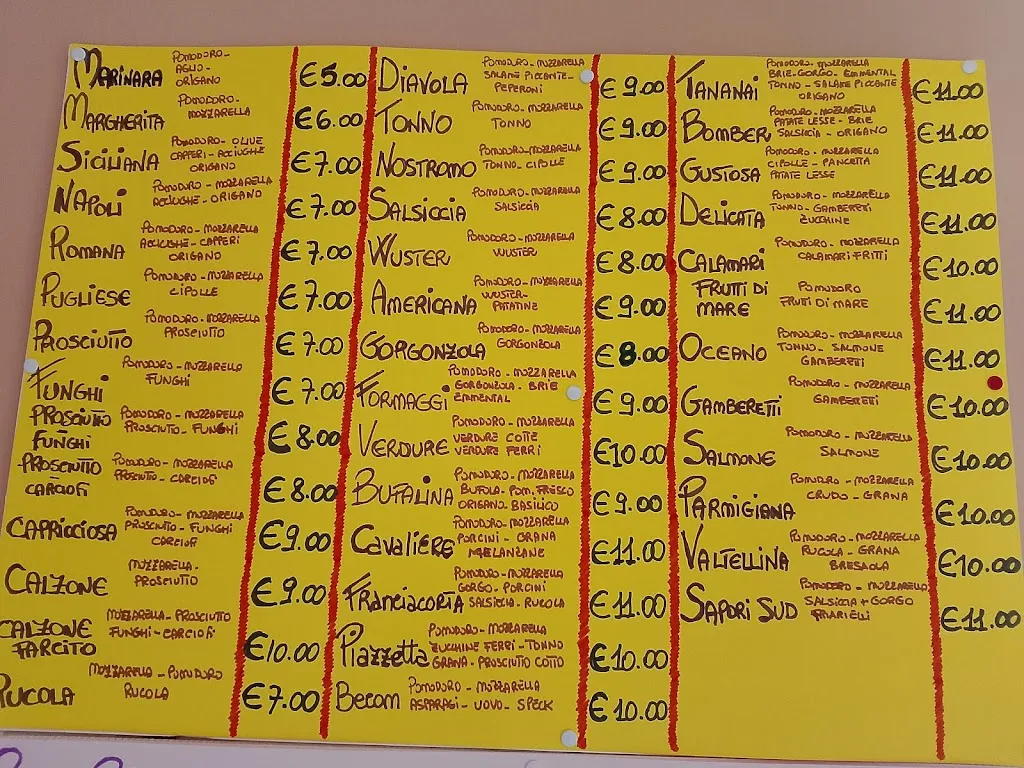 MARINARA
POMODORO-
AGLIO-
ORIGANO
€5.00
MARGHERITA
POMODORO-
MOZZARELLA
€6.00
SICILIANA
POMODORO - OLIVE
CAPPERI - ACCIUGHE
ORIGANO
€7.00
NAPOLI
POMODORO - MOZZARELLA
ACCIUGHE - ORIGANO
€7.00
ROMANA
POMODORO - MOZZARELLA
ACCIUGHE - CAPPERI
ORIGANO
€7.00
PUGLIESE
POMODORO - MOZZARELLA
CIPOLLE
€7.00
PROSCIUTTO
POMODORO - MOZZARELLA
PROSCIUTTO
€7.00
FUNGHI
POMODORO - MOZZARELLA
FUNGHI
€7.00
PROSCIUTTO
FUNGHI
POMODORO - MOZZARELLA
PROSCIUTTO - FUNGHI
€8.00
PROSCIUTTO
CARCIOFI
POMODORO - MOZZARELLA
PROSCIUTTO - CARCIOFI
€8.00
CAPRICCIOSA
POMODORO - MOZZARELLA
PROSCIUTTO - FUNGHI
CARCIOFI
€9.00
CALZONE
MOZZARELLA-
PROSCIUTTO
€9.00
CALZONE
FARCITO
MOZZARELLA - PROSCIUTTO
FUNGHI - CARCIOFI
€10.00
RUCOLA
MOZZARELLA - POMODORO
RUCOLA
€7.00
DIAVOLA
POMODORO - MOZZARELLA
SALAME PICCANTE-
PEPERONI
€9.00
TONNO
POMODORO - MOZZARELLA
TONNO
€9.00
NOSTROMO
POMODORO - MOZZARELLA
TONNO - CIPOLLE
€9.00
SALSICCIA
POMODORO - MOZZARELLA
SALSICCIA
€8.00
WUSTER
POMODORO - MOZZARELLA
WUSTER
€8.00
AMERICANA
POMODORO - MOZZARELLA
WUSTER-
PATATINE
€9.00
GORGONZOLA
POMODORO - MOZZARELLA
GORGONZOLA
€8.00
FORMAGGI
POMODORO - MOZZARELLA
GORGONZOLA - BRIE
EMMENTAL
€9.00
VERDURE
POMODORO - MOZZARELLA
VERDURE COTTE
VERDURE FERRI
€10.00
BUFALINA
POMODORO - MOZZARELLA
BUFOLA - POM. FRESCO
ORIGANO BASILICO
€9.00
CAVALIERE
POMODORO - MOZZARELLA
PORCINI - GRANA
MELANZANE
€11.00
FRANCIACORTA
POMODORO - MOZZARELLA
GORGO - PORCINI
SALSICCIA - RUCOLA
€11.00
PIAZZETTA
POMODORO - MOZZARELLA
ZUCCHINE FERRI - TONNO
GRANA - PROSCIUTTO COTTO
€10.00
BECOM
POMODORO - MOZZARELLA
ASPARAGI - UOVO - SPECK
€10.00
TANANAI
POMODORO - MOZZARELLA
BRIE-GORGO - EMMENTAL
TONNO - SALAME PICCANTE
ORIGANO
€11.00
BOMBER
POMODORO - MOZZARELLA
PATATE LESSE - BRIE
SALSICCIA - ORIGANO
€11.00
GUSTOSA
POMODORO - MOZZARELLA
CIPOLLE - PANCETTA
PATATE LESSE
€11.00
DELICATA
POMODORO - MOZZARELLA
TONNO - GAMBERETTI
ZUCCHINE
€11.00
CALAMARI
POMODORO - MOZZARELLA
CALAMARI FRITTI
€10.00
FRUTTI DI
MARE
POMODORO
FRUTTI DI MARE
€11.00
OCEANO
POMODORO - MOZZARELLA
TONNO - SALMONE
GAMBERETTI
€11.00
GAMBERETTI
POMODORO - MOZZARELLA
GAMBERETTI
€10.00
SALMONE
POMODORO - MOZZARELLA
SALMONE
€10.00
PARMIGIANA
POMODORO - MOZZARELLA
CRUDO - GRANA
€10.00
VALTELLINA
POMODORO - MOZZARELLA
RUCOLA - GRANA
BRESAOLA
€10.00
SAPORI SUD
POMODORO - MOZZARELLA
SALSICCIA + GORGO
FRIARIELLI
€11.00